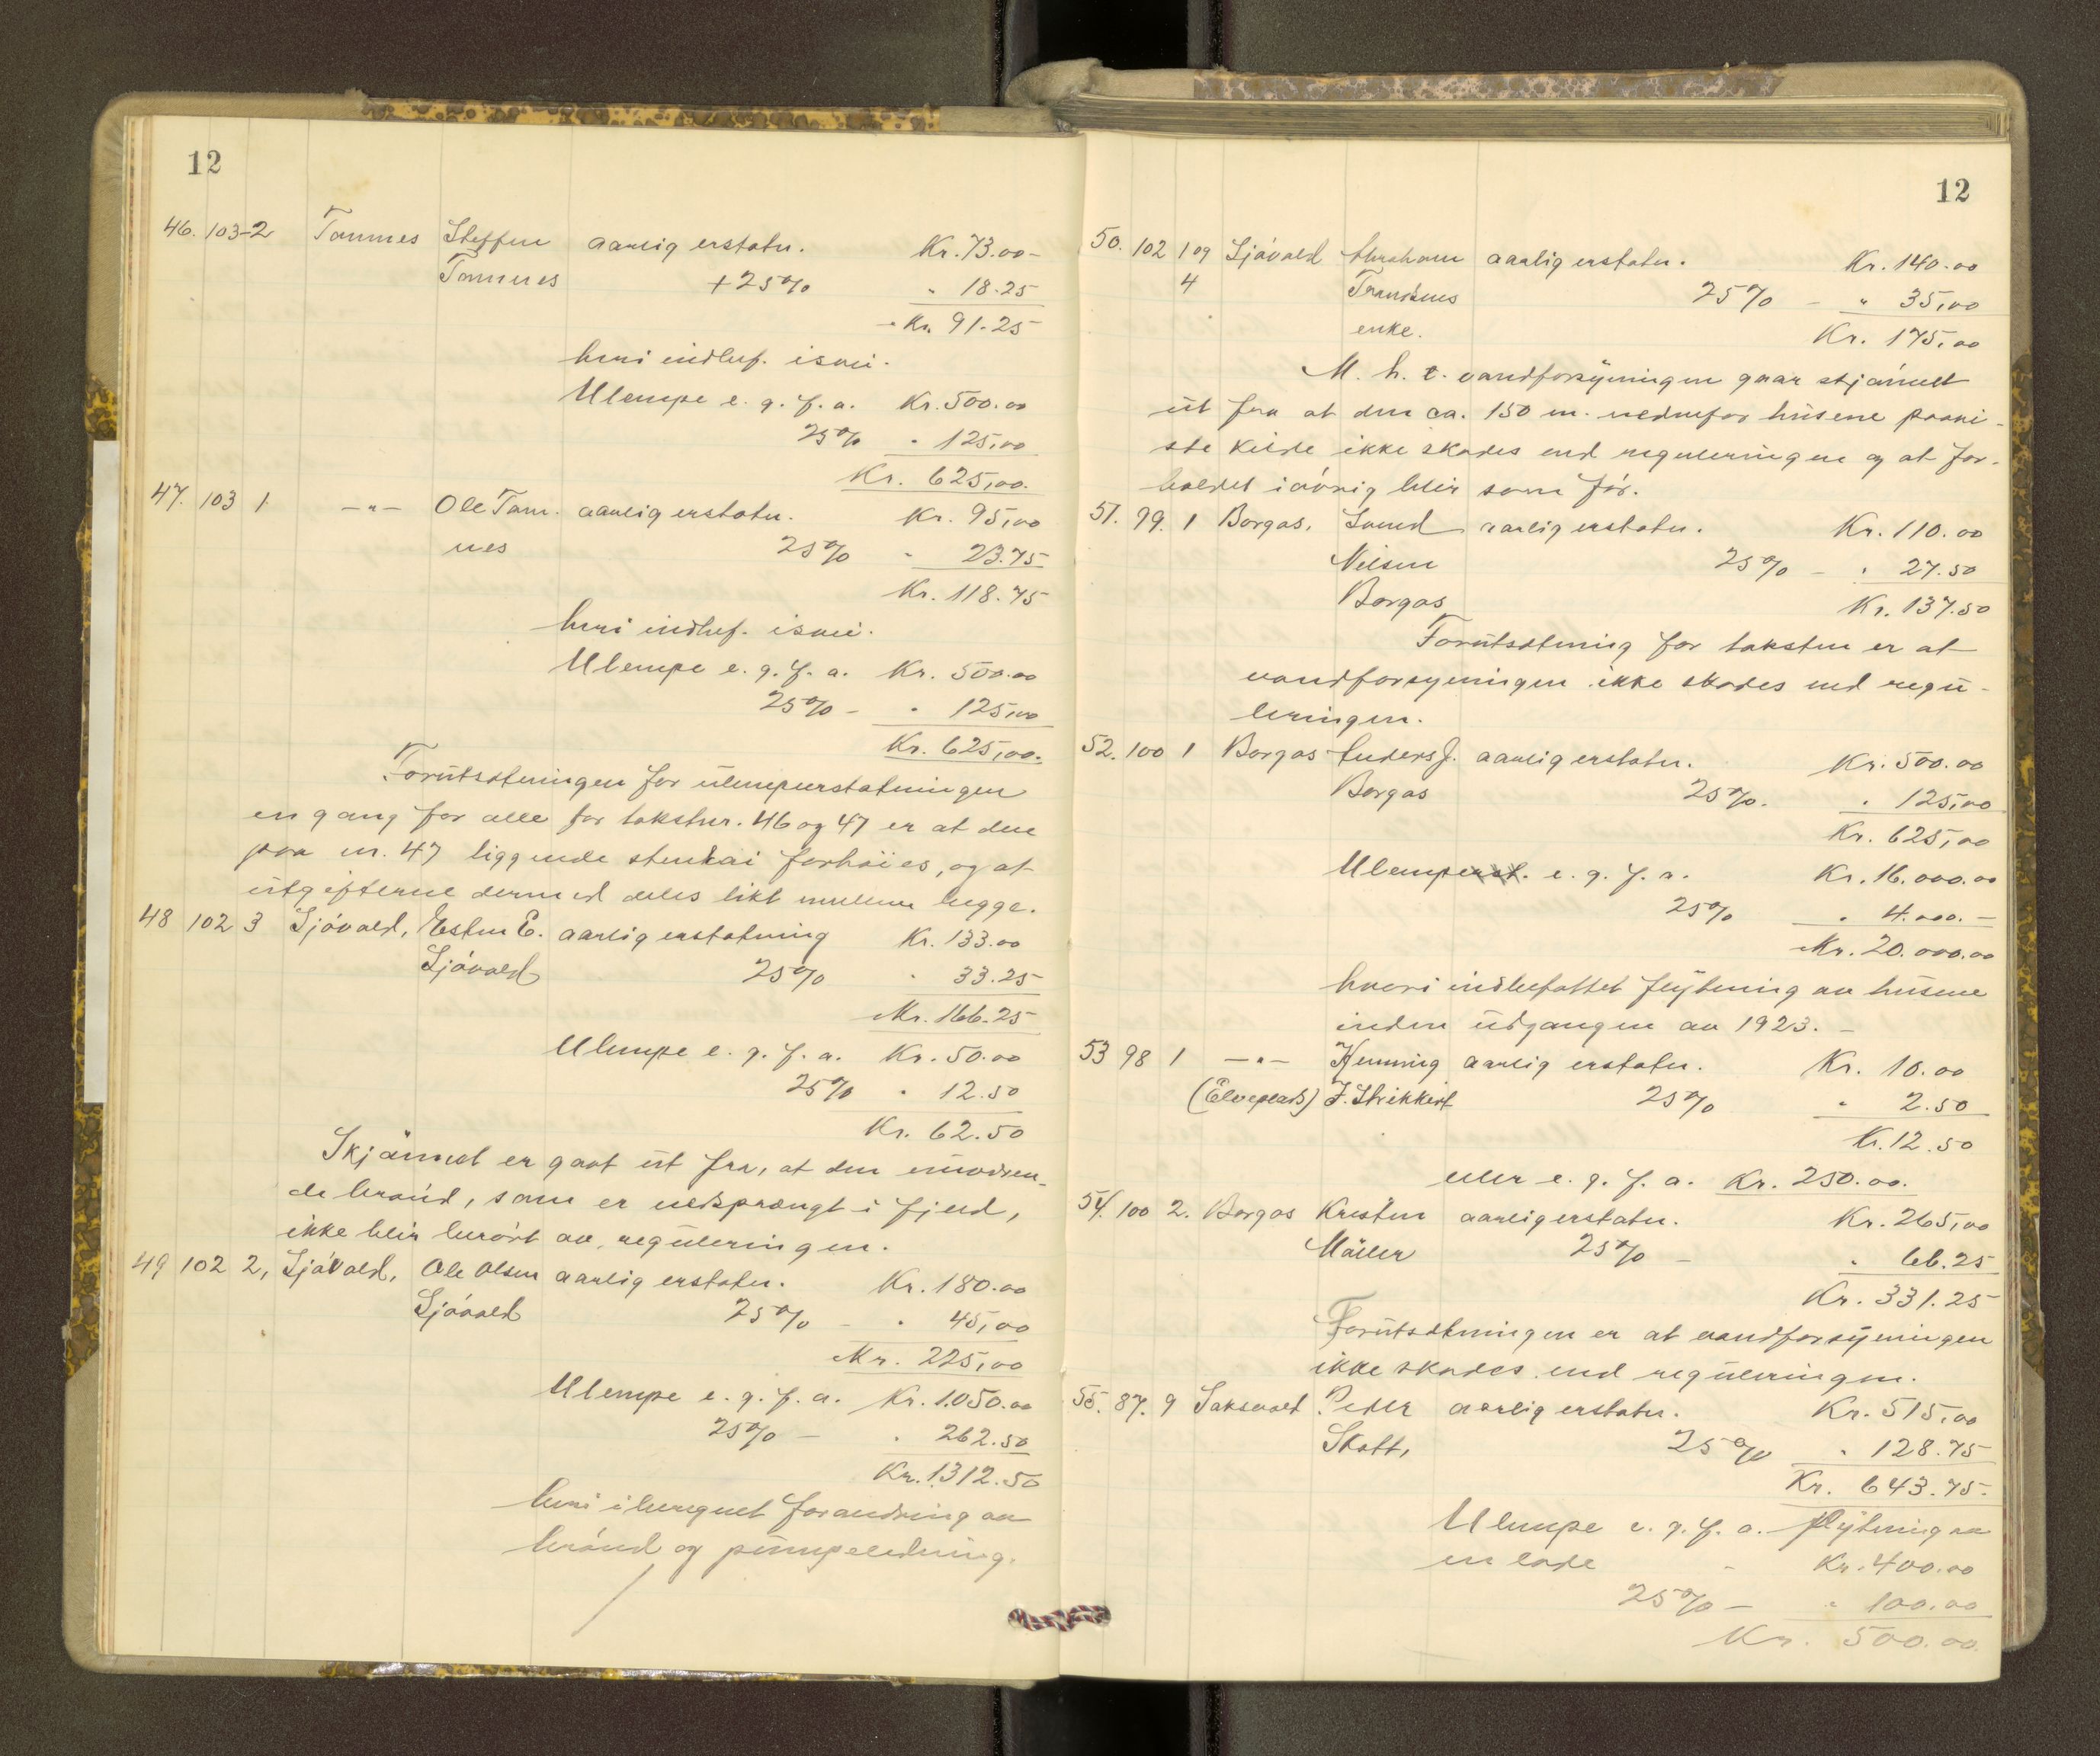 12
46. 103-2 Tonnes Steffen aarlig erstatn. Kr. 73.00
Tonnes +25% " 18.25
Kr. 91.25
heri indbef. isvei.
Ulempe e. g. f. a. Kr. 500.00
25% " 125,00
Kr. 625,00.
47. 103 1 —"— Ole Ton- aarlig erstatn. Kr. 95,00
nes 25% " 23.75
Kr. 118.75
heri indbef. isvei.
Ulempe e. g. f. a. Kr. 500.00
25% - " 125,00
Kr. 625,00.
Forutsætningen for ulempeerstatningen
en gang for alle for takstnr. 46 og 47 er at den
paa nr. 47 liggende stenkai forhöies, og at
utgifterne dermed deles likt mellem begge.
48 102 3 Sjövold, Esten E. aarlig erstatning Kr. 133.00
Sjövold 25% " 33.25
Kr. 166.25
Ulempe e. g. f. a. Kr. 50.00
25% " 12.50
Kr. 62.50
Skjönnet er gaat ut fra, at den nuværen-
de brönd, som er nedsprængt i fjeld,
ikke blir berört av reguleringen.
49 102 2, Sjövold, Ole Olsen aarlig erstatn. Kr. 180.00
Sjövold 25% - " 45,00
Kr. 225,00
Ulempe e. g. f. a. Kr. 1.050.00
25% - " 262.50
Kr. 1312.50
heri iberegnet forandring av
brönd og pumpeledning.
12
50. 102 109 Sjövold Abraham aarlig erstatn. Kr. 140.00
4 25% - " 35,00
enke. Kr. 175,00
M. h. t. vandforsyningen gaar skjönnet
ut fra at den ca. 150 m. nedenfor husene paavi-
ste kilde ikke skades ved reguleringen og at for-
holdet iövrig blir som för.
51. 99. 1 Borgas, Svend aarlig erstatn. Kr. 110.00
Nilsen 25% - " 27.50
Borgas Kr. 137.50
Forutsætning for taksten er at
vandforsyningen ikke skades ved regu-
leringen.
52. 100 1 Borgas Anders J. aarlig erstatn. Kr. 500.00
Borgas 25%. " 125,00
Kr. 625,00
Ulempeerst. e. g. f. a. Kr. 16.000.00
25% " 4.000.—
Kr. 20.000.00
hvori indbefattet flytning av husene
inden udgangen av 1923. —
53 98 1 —"— Henning aarlig erstatn. Kr. 10.00
(Elveplads) J. Strikkert 25% " 2.50
Kr. 12.50
eller e. g. f. a. Kr. 250.00.
54. 100 2. Borgos Kristen aarlig erstatn. Kr. 265,00
Möller 25% - " 66.25
Kr. 331.25
Forutsætningen er at vandforsyningen
ikke skades ved reguleringen.
55. 87. 9 Saksvold Peder aarlig erstatn. Kr. 515,00
Skott, 25% " 128.75
Kr. 643.75.
Ulempe e. g. f. a. flytning av
en lade - Kr. 400.00
25% - " 100.00
Kr. 500.00.